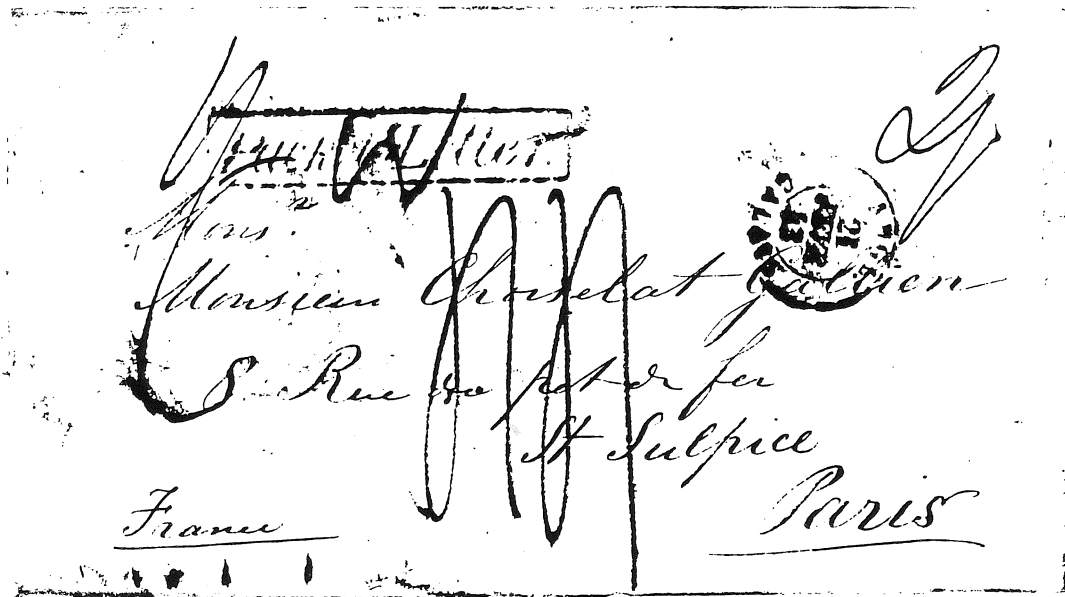 Mons.
Monsieur Choiselat Gallien
8 Rue du pot de fer
St Sulpice
Paris
France